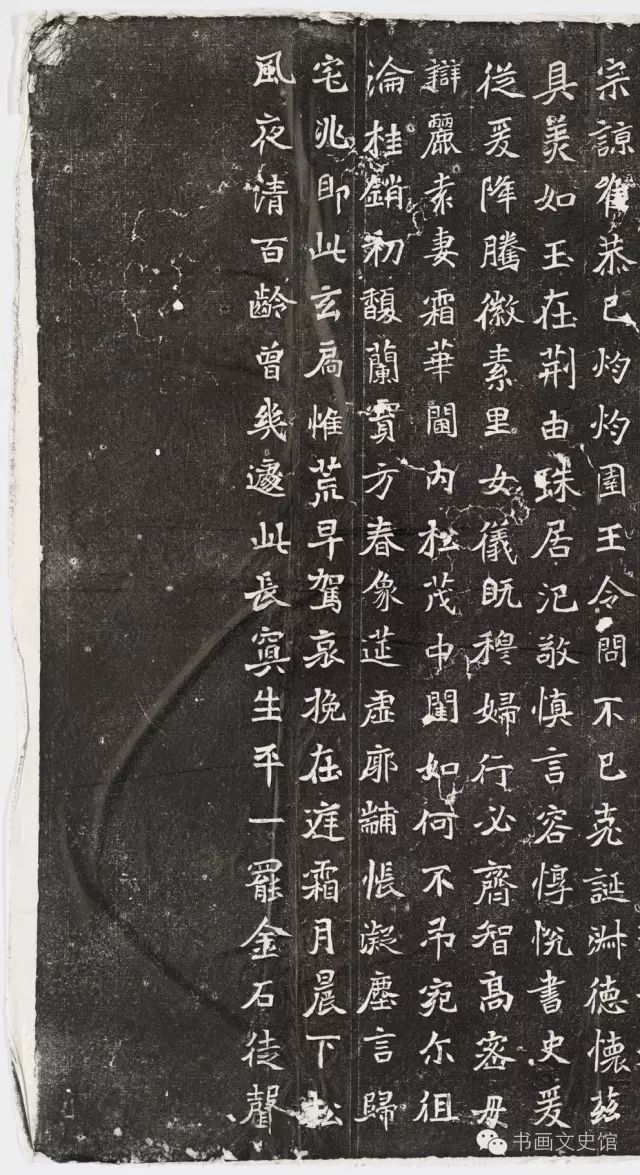 宗諒惟恭已灼灼圉王令問不已克誕淋德懷茲
具美如玉在荆由珠居汜敬慎言容惇悅書史爰
従爰降騰徽素里女儀既穆婦行必齊智高密母
辯麗袁妻霜華閫內松茂中閨如何不弔宛尒徂
淪桂銷初馥蘭實方春象莚虛廓黼帳凝塵言歸
宅兆即此玄扃惟荒早駕哀挽在庭霜月晨下松
風夜清百齡曾幾遽此長寘生平一罷金石徒聲
书画文史馆